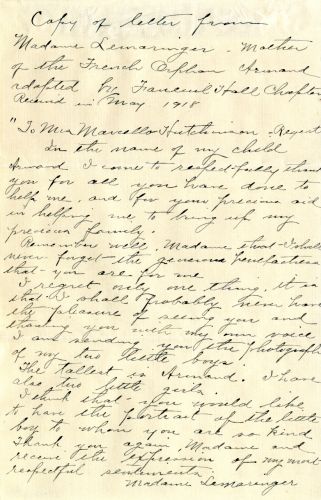 Copy of letter from
Madame Lemaringer - Mother
of the French Orphan Armand
adopted by Faneuil Hall Chapter
Received in May 1918
"To Mrs Marcello Hutchinson - Regent
In the name of my child
Armand I come to respectfully thank
you for all you have done to
help me, and for your precious aid
in helping me to bring up my
precious family.
Remember well, Madame that I shall
never forget the generous benefactress
that you are for me
I regret only one thing, it is
that I shall probably never have
the pleasure of seeing you and
thanking you with my own voice
I am sending you the photograph
of my two little boys.
The tallest is Armand. I have
also two little girls.
I think that you would like
to have the portrait of the little
boy to whom you are so kind
Thank you again Madame and
receive the expression of my most
respectful sentiments.
Madame Lemarenger